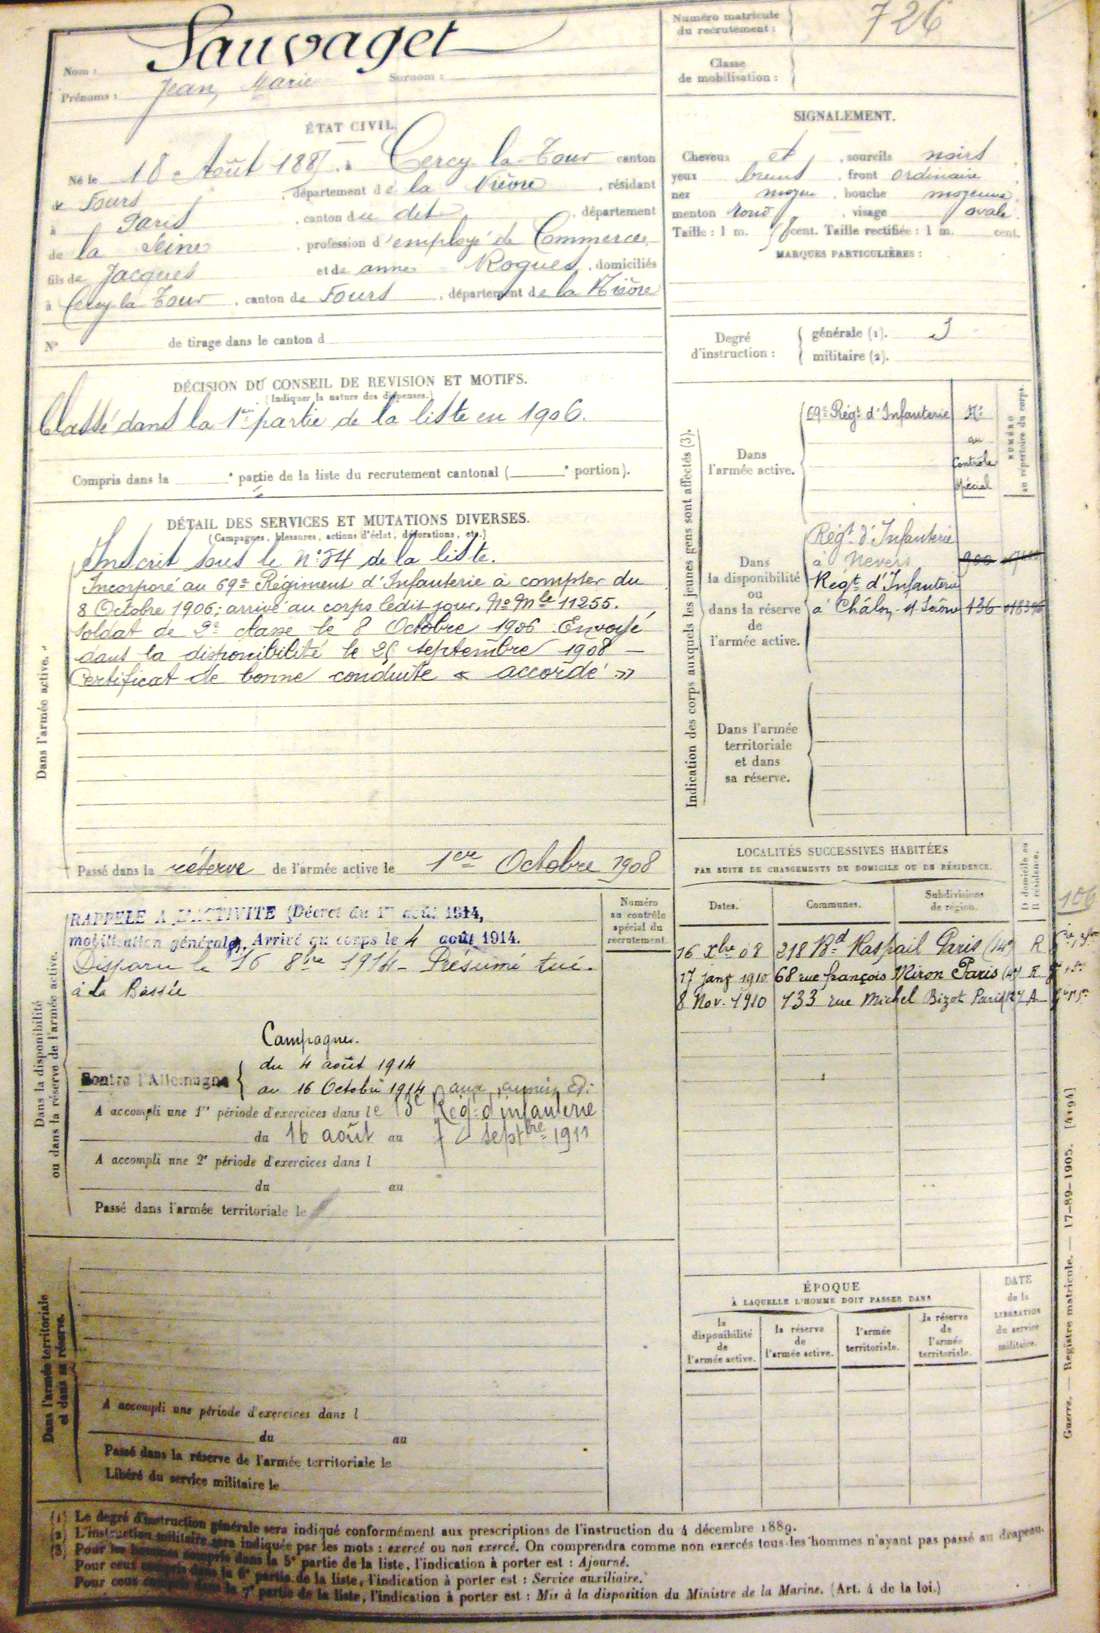 Nom : Sauvaget
Prénoms : Jean, Marie Surnom :
Numéro matricule du recrutement : 726
Classe de mobilisation :
ÉTAT CIVIL.
Né le 18 Août 188 , à Cercy-la-Tour canton
de Fours , département de la Nièvre , résidant
à Paris , canton du dit , département
de la Seine , profession d'employé de Commerce,
fils de Jacques et de anne Rogues, domiciliés
à Cercy la Tour , canton de Fours , département de la Nièvre
N° de tirage dans le canton d
SIGNALEMENT.
Cheveux et , sourcils noirs
yeux bruns , front ordinaire
nez moyen , bouche moyenne
menton rond , visage ovale
Taille : 1 m. cent. Taille rectifiée : 1 m. cent.
MARQUES PARTICULIÈRES :
Degré d'instruction :
générale (1). 3
militaire (2).
DÉCISION DU CONSEIL DE REVISION ET MOTIFS.
(Indiquer la nature des dispenses.)
Classé dans la 1re partie de la liste en 1906.
Compris dans la ° partie de la liste du recrutement cantonal ( ° portion).
DÉTAIL DES SERVICES ET MUTATIONS DIVERSES.
(Campagnes, blessures, actions d'éclat, décorations, etc.)
Dans l'armée active.
Inscrit sous le N° 34 de la liste.
Incorporé au 69e Régiment d'Infanterie à compter du
8 Octobre 1906; arrivé au corps ledit jour, No Mle 11255.
Soldat de 2e classe le 8 Octobre 1906. Envoyé
dans la disponibilité le 25 septembre 1908 —
Certificat de bonne conduite « accordé »
Passé dans la réserve de l'armée active le 1er Octobre 1908
Indication des corps auxquels les jeunes gens sont affectés (3).
NUMÉRO au répertoire du corps.
Dans l'armée active.
69e Régt d'Infanterie
Mle
au
Contrôle
spécial
Dans la disponibilité ou dans la réserve de l'armée active.
Régt d'Infanterie
à Nevers
Regt d'Infanterie
à Châlon-s/-Saône 136
Dans l'armée territoriale et dans sa réserve.
Dans la disponibilité ou dans la réserve de l'armée active.
Numéro au contrôle spécial du recrutement.
RAPPELÉ A L'ACTIVITÉ (Décret du 1er août 1914,
mobilisation générale). Arrivé au corps le 4 août 1914.
Disparu le 16 8bre 1914 - Présumé tué.
à La Bassée
Campagnes.
Contre l'Allemagne
du 4 août 1914
au 16 Octobre 1914 aux armées
A accompli une 1re période d'exercices dans le 13e Régt d'infanterie
du 16 août au 7 septbre 1911
A accompli une 2e période d'exercices dans l
du au
Passé dans l'armée territoriale le
LOCALITÉS SUCCESSIVES HABITÉES
PAR SUITE DE CHANGEMENTS DE DOMICILE OU DE RÉSIDENCE.
D domicile ou R résidence.
Dates. Communes. Subdivisions de région.
106
16 Xbre 08 218 Bd Raspail Paris (14e) R
17 janv 1910 68 rue françois Miron Paris (4e) R
8 Nov. 1910 133 rue Michel Bizot Paris A
Dans l'armée territoriale et dans sa réserve.
A accompli une période d'exercices dans l
du au
Passé dans la réserve de l'armée territoriale le
Libéré du service militaire le
ÉPOQUE
À LAQUELLE L'HOMME DOIT PASSER DANS
la disponibilité de l'armée active.
la réserve de l'armée active.
l'armée territoriale.
la réserve de l'armée territoriale.
DATE de la LIBÉRATION du service militaire.
Guerre. — Registre matricule. — 17-89-1905. [4194]
(1) Le degré d'instruction générale sera indiqué conformément aux prescriptions de l'instruction du 4 décembre 1889.
(2) L'instruction militaire sera indiquée par les mots : exercé ou non exercé. On comprendra comme non exercés tous les hommes n'ayant pas passé au drapeau.
(3) Pour les hommes compris dans la 5e partie de la liste, l'indication à porter est : Ajourné.
Pour ceux compris dans la 6e partie de la liste, l'indication à porter est : Service auxiliaire.
Pour ceux compris dans la 7e partie de la liste, l'indication à porter est : Mis à la disposition du Ministre de la Marine. (Art. 4 de la loi.)